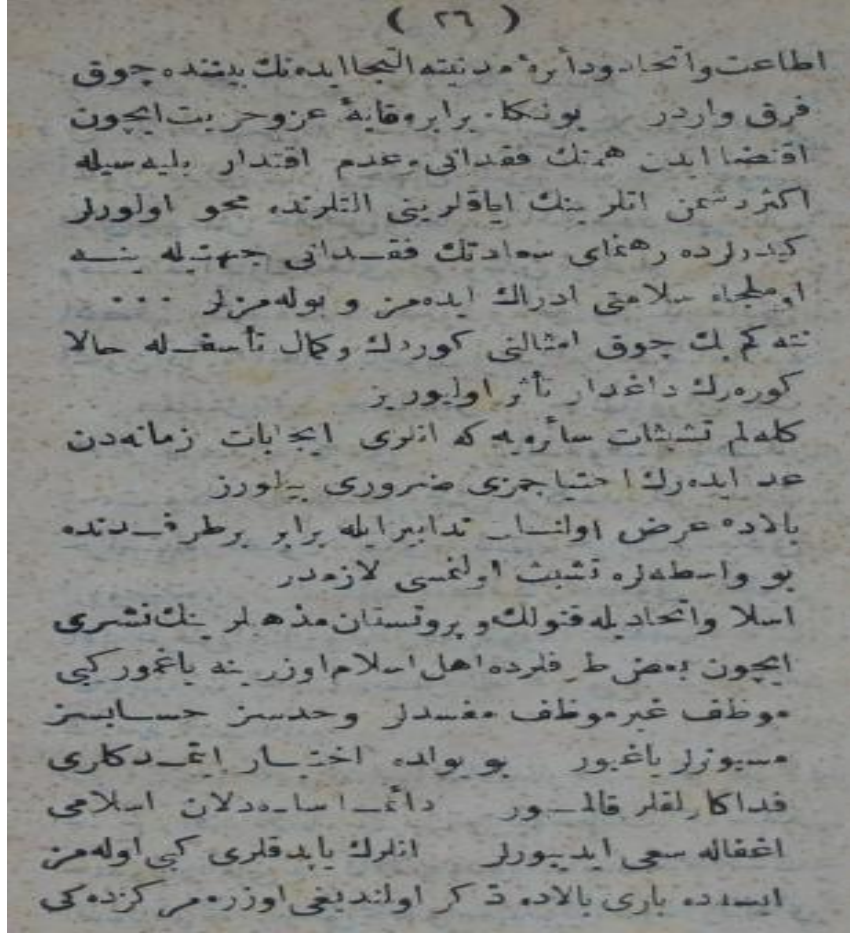 ( ٢٦ )
اطاعت و اتحاد ودائرهٔ مدنيته التجا ايده‌نك بيننده چوق
فرق واردر بونكله برابر وقايهٔ عز وحريت ايچون
اقتضا ايدن همتك فقدانى وعدم اقتدار بليه سيله
اكثر دشمن اتلرينك اياقلرينى التلرنده محو اولورلر
كيدرلرده رهنماى سعادتك فقدانى جهتيله ينه
او ملجاء سلامتى ادراك ايده‌مز و بوله‌مزلر ...
نته كم پك چوق امثالنى كوردك وكمال تأسفله حالا
كوره‌رك داغدار تأثر اوليورز
كله‌لم تشبثات سائره‌يه كه انلرى ايجابات زمانه‌دن
عد ايده‌رك احتياجمزى ضرورى بيلورز
بالاده عرض اولنان تدابير ايله برابر بر طرفدنده
بو واسطه‌لره تشبث اولنمسى لازمدر
اسلا واتحاديله قتولك و پروتستان مذهبلرينك نشرى
ايچون بعض طرفلرده اهل اسلام اوزرينه ياغمور كبى
موظف غير موظف مفسدلر وحدسز حسابسز
مسيونرلر ياغيور بو يولده اختيار ايتمدكلرى
فداكارلقلر قالميور دائما ساده‌دلان اسلامى
اغفاله سعى ايدييورلر انلرك ياپدقلرى كبى اوله‌مز
ايسه‌ده بارى بالاده ذكر اولنديغى اوزره مركزده‌كى